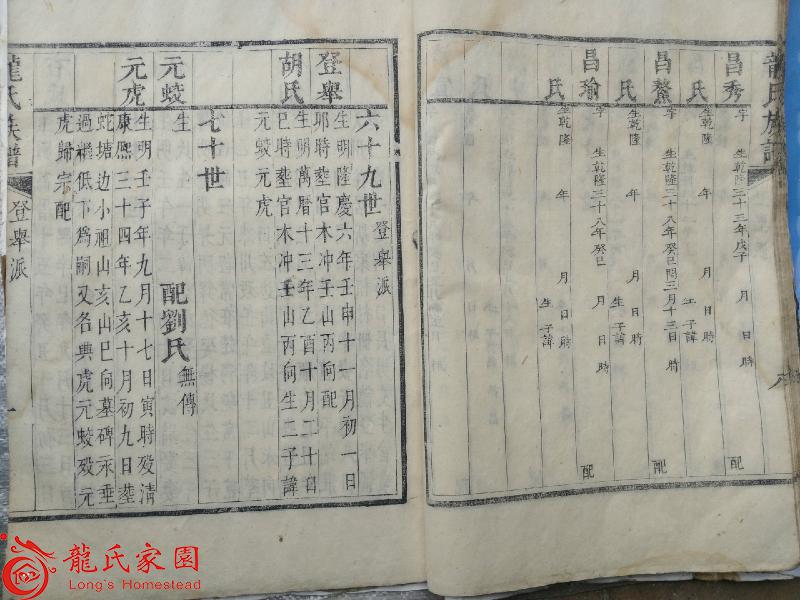 龍氏族譜
昌秀 字 生乾隆三十三年戊子 月 日 時 配
氏 生乾隆 年 月 日 時 生 子諱
昌鰲 字 生乾隆三十八年癸巳閏三月十三日 時 配
氏 生乾隆 年 月 日 時 生 子諱
昌瑜 字 生乾隆三十八年癸巳 月 日 時 配
氏 生乾隆 年 月 日 時 生 子諱
登舉派
六十九世
登舉 生明隆慶六年壬申十一月初一日
耶時塟官木冲壬山丙向配
胡氏 生明萬曆十三年乙酉十月二十日
巳時塟官木冲壬山丙向生二子諱
元蛟元虎
七十世
元蛟 生 配劉氏 無傳
元虎 生明壬子年九月十七日寅時殁清
康熙三十四年乙亥十月初九日塟
蛇塘边小祖山亥山巳向墓碑氶垂
過繼低下爲嗣又名典虎元蛟殁元
虎歸宗配
龍氏族譜
登舉派
一
龍氏家園
Long's Homestead